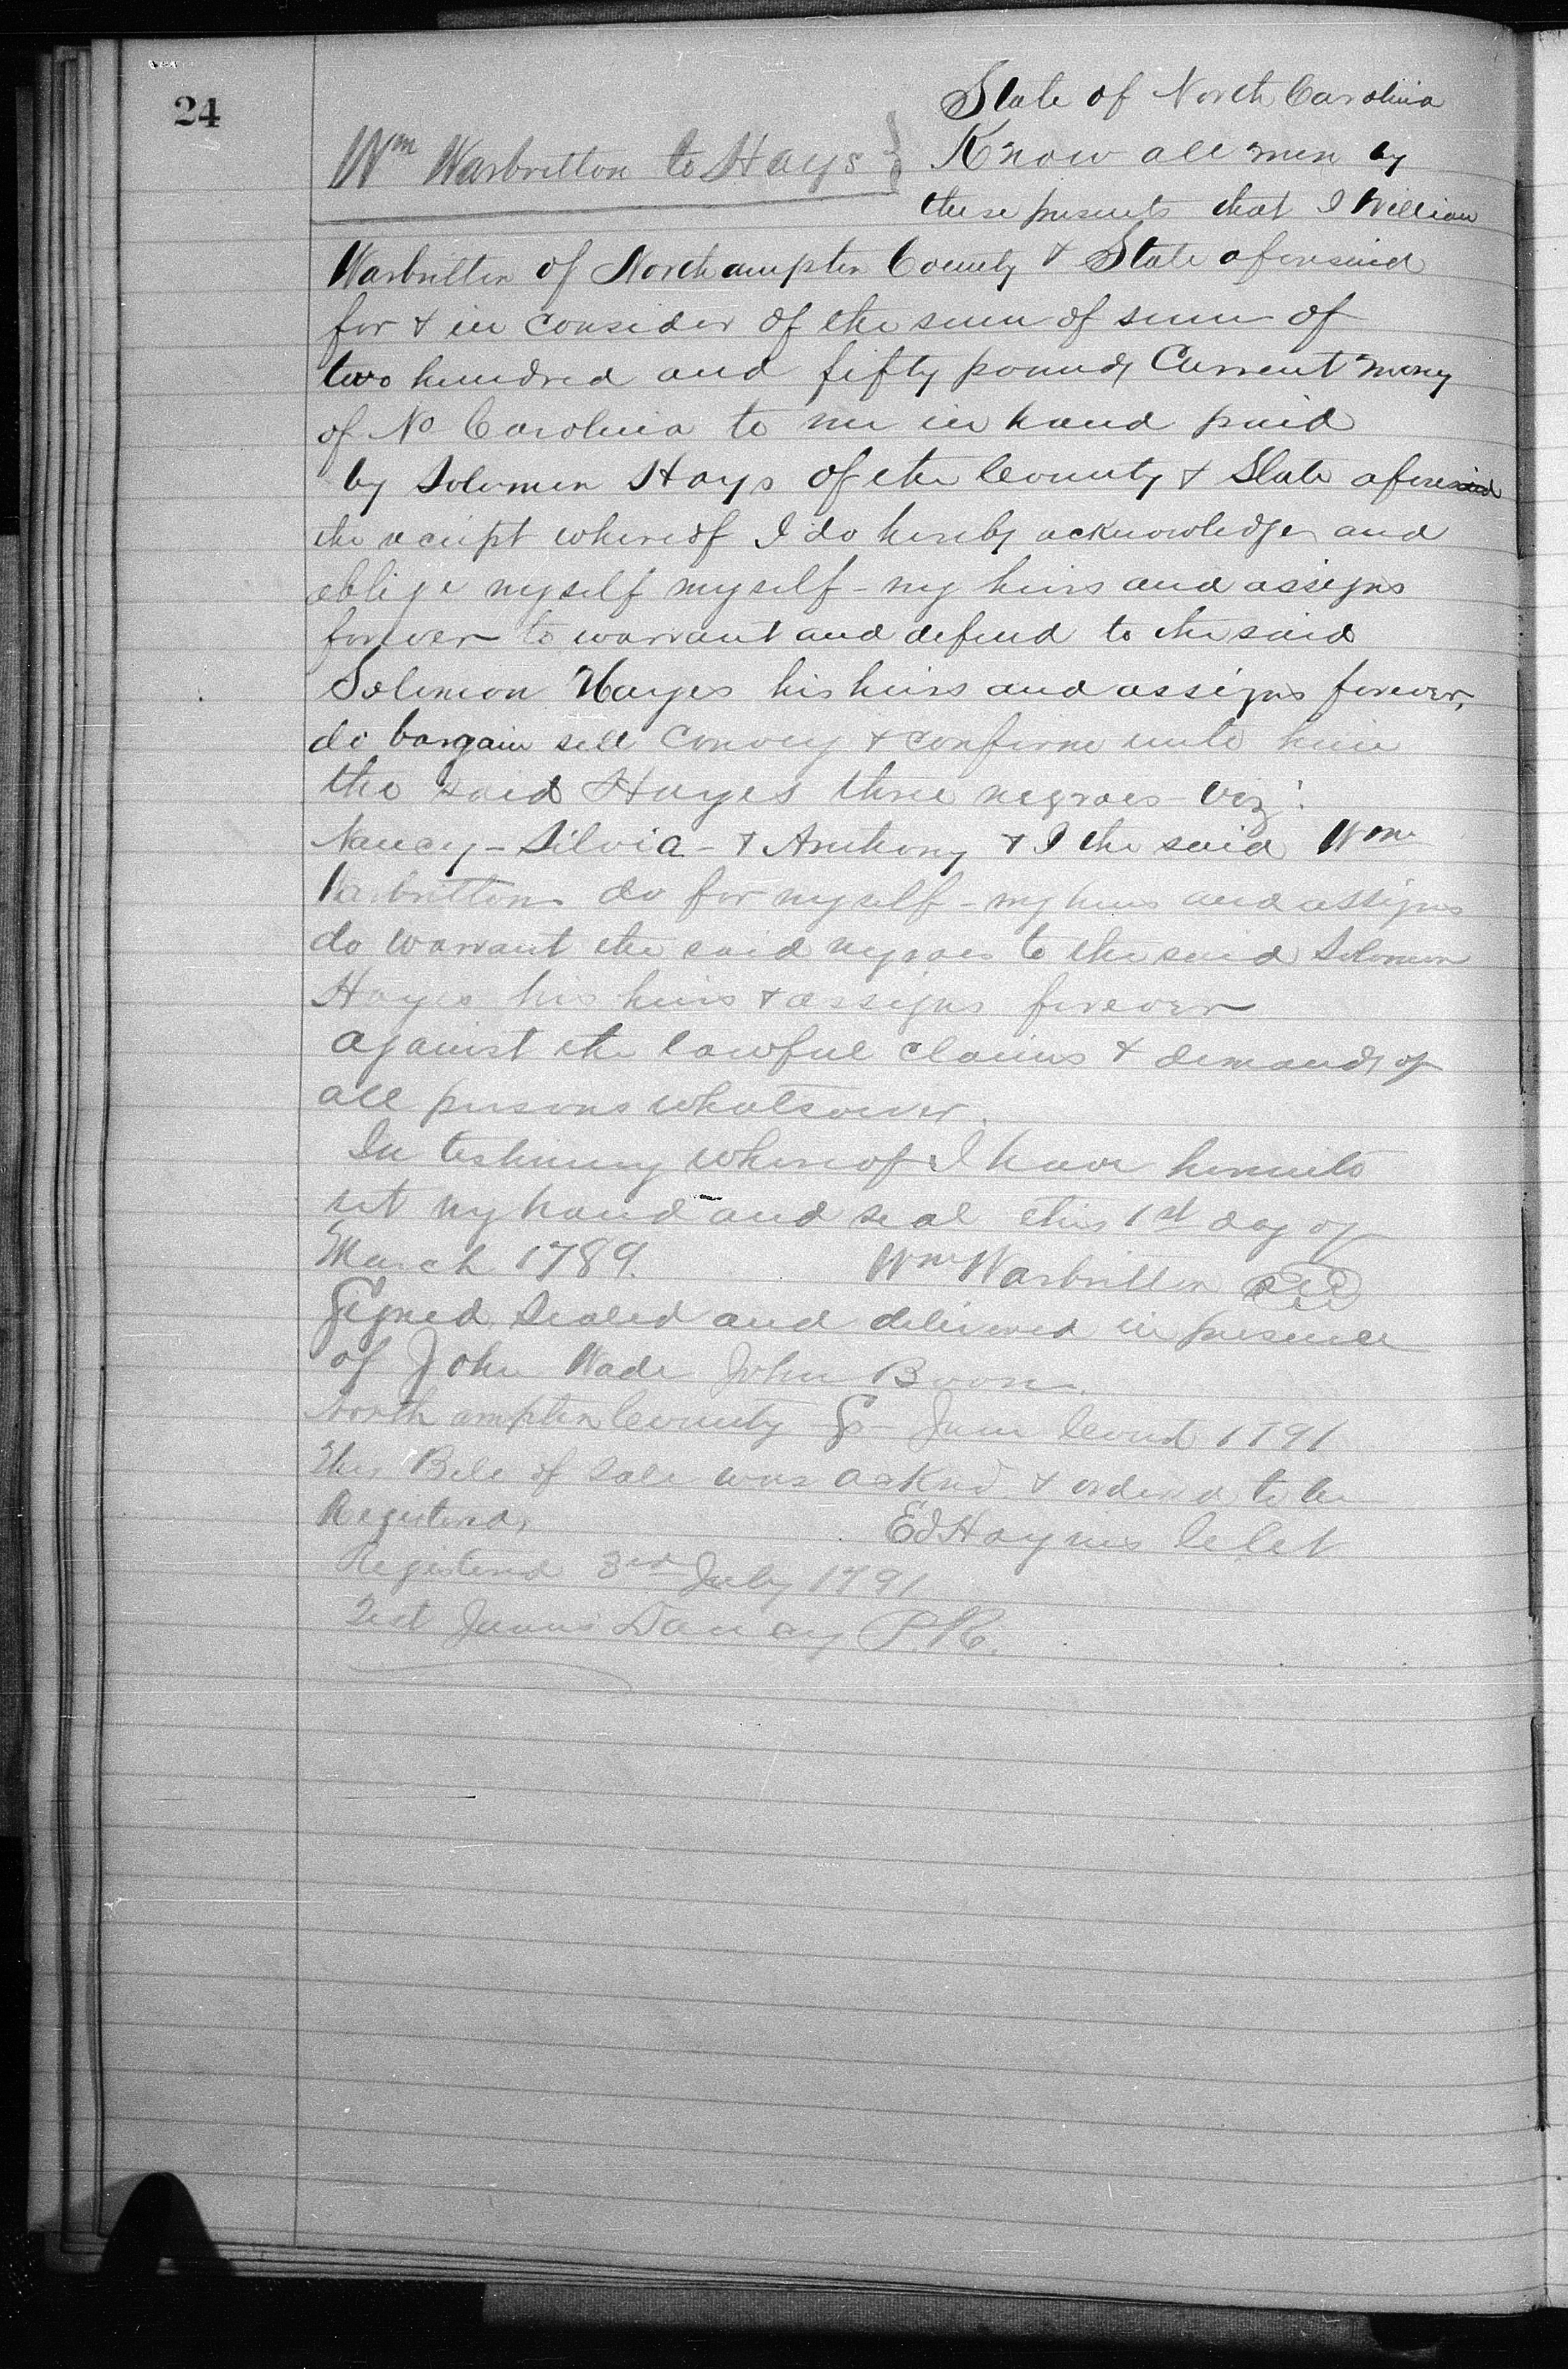 24
State of North Carolina
Wm Warbritton to Hays } Know all men by
these presents that I William
Warbritton of Northampton County & State aforesaid
for & in consider of the sum of sum of
two hundred and fifty pounds Current money
of No Carolina to me in hand paid
by Solomon Hays of the County & State aforesaid
the receipt whereof I do hereby acknowledge and
oblige myself myself - my heirs and assigns
forever to warrant and defend to the said
Solomon Hayes his heirs and assigns forever,
do bargain sell convey & confirm unto him
the said Hayes three negroes viz:
Nancy - Silvia - & Anthony & I the said Wm
Warbritton do for myself - my heirs and assigns
do warrant the said negroes to the said Solomon
Hayes his heirs & assigns forever
against the lawful claims & demands of
all persons whatsoever.
In testimony whereof I have hereunto
set my hand and seal this 1st day of
March 1789. Wm Warbritton Seal
Signed Sealed and delivered in presence
of John Wade John Boon.
Northampton County S- June Court 1791
This Bill of Sale was acknd & ordered to be
Registered. Ed Haynes Cl Ct
Registered 3rd July 1791
Test James Dancy P.R.